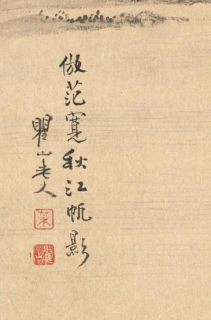 倣范寬秋江帆影
瞿山老人